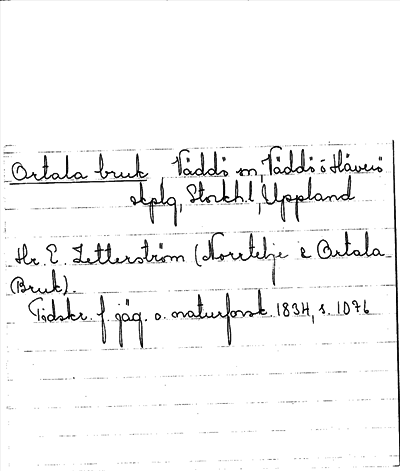 Ortala bruk, Väddö sn, Väddö o Häverö
skplg, Stockh.l, Uppland
Hr. E. Zetterström (Norrtelje & Ortala
Bruk).
Tidskr. f. jäg. o. naturforsk. 1834, s. 1076